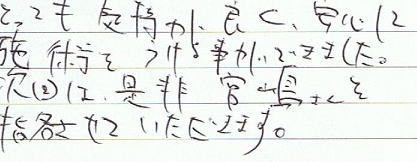 とっても気持が良く、安心に
施術を うける事ができました。
次回は、是非 宮嶋さんを
指名させていただきます。